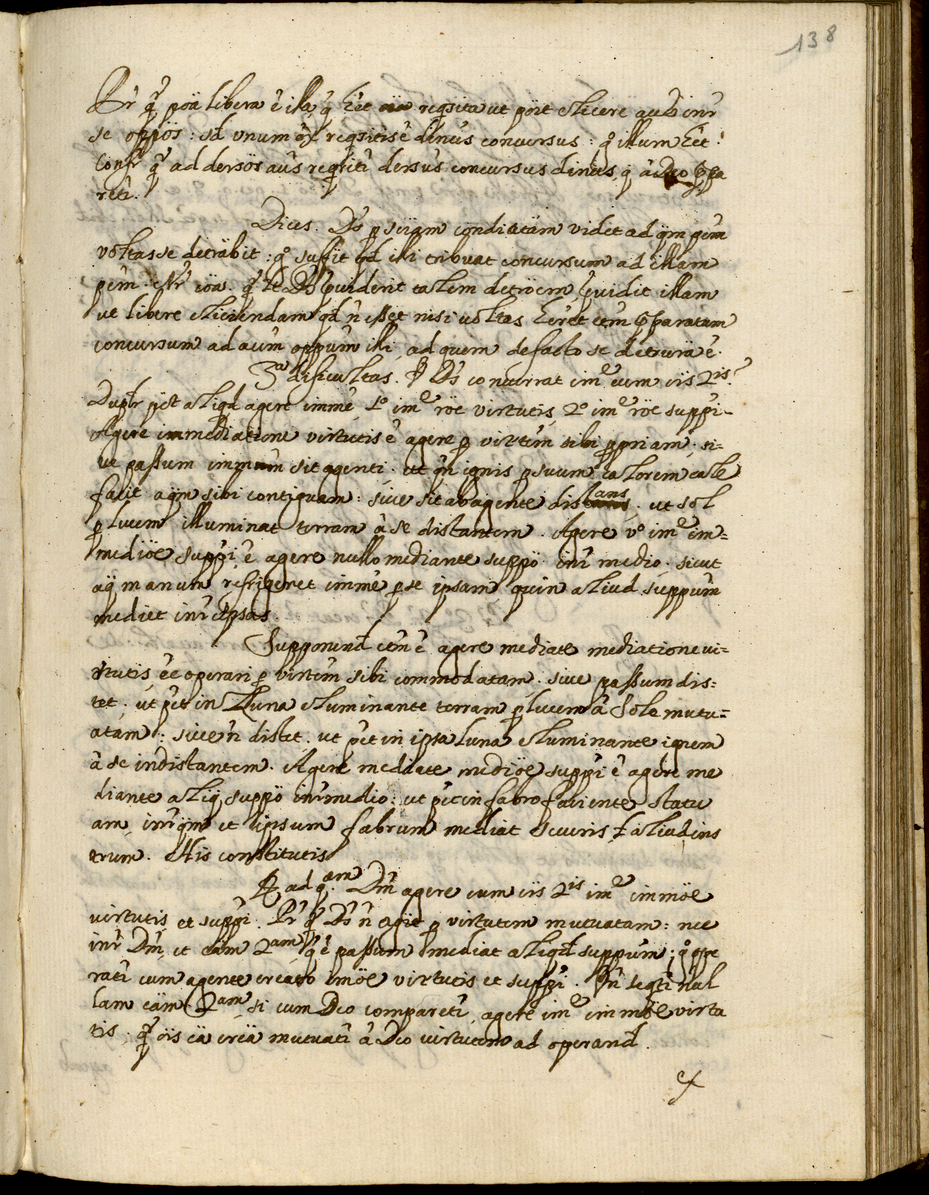 138
Pr̃ q̃ poã libera ẽ illa, q̃ hẽt oĩa reqsita ut poĩt elicere actũs inr̃
se oppõs : sd unum ex reqsitis ẽ divinus concursus : gͦ illum hẽt.
Confr̃ q̃ ad dersos actũs reqriti dersus concursus divinus, q̃ à Deo
reti.
Dices. Ds̃ p sciam condiatam videt ad qm pem
voltas se detrãbit : gͦ suffit qd illi tribuat concursum ad illam
pẽm. Nr̃ coñs. q̃ ut Ds̃ pviderit talem detroẽm, pvidit illam
ut libere eliciendam qd ñ esset nisi voltas heret etm pparatum
concursum ad actũm oppũm illi, ad quem de facto se detrura ẽ.
3ᵃ dificultas. Ds̃ concurrat imᵉ cum cïs 2ⁱˢ?
Duplr pt aliqd agere immẽ, 1º imᵉ roẽ virtutis, 2º imᵉ roẽ suppi.
Agere immediatione virtutis ẽ agere p virtũm sibi ppriam, si-
ve passum immũm sit agenti. ut qñ ignis p suum calorem cale
facit aqm sibi contiguam : sive sit ab agente distans. ut sol
p lucem illuminat terram à se distantem. Agere vº imᵉ im=
mediõe suppi ẽ agere nullo mediante suppõ inr̃ medio. sicut
aq manum refrigeret immẽ p se ipsam quin aliud suppũm
mediet inr̃ ipsas.
Supponend etm ẽ agere mediate mediatione vi=
rtutis ẽe operari p virtũm sibi commodatam. sive passum dis=
tet. ut pẽt in Luna eluminante terram p lucem à Sole mutu=
atam : sive ñ distet. ut pẽt in ipsa luna eluminante ignem
à se indistantem. Agere mediate mediõe suppi ẽ agere me
diante aliq suppõ inr̃medio : ut pẽt in fabro faciente statu
am, inr̃ qm et ipsum fabrum mediat securis t aliud ins
trum. His constitutis
R ad qᵃᵐ. Dm̃ agere cum cïs 2ⁱˢ imᵉ immõe
virtutis et suppi. Pr̃ q̃ Ds̃ ñ agit p virtutem mutuatam : nec
inr̃ Dm̃, et cãm 2ᵃᵐ, q̃ ẽ passum mediat aliqd suppũm : gͦ ope
rati cum agente creato imõe virtutis et suppi. In seqti nul
lam cãm 2ᵃᵐ, si cum Deo compareti, agere imᵉ immõe virtu
tis. q̃ oïs cã creã mutuati à Deo virtutem ad operand.